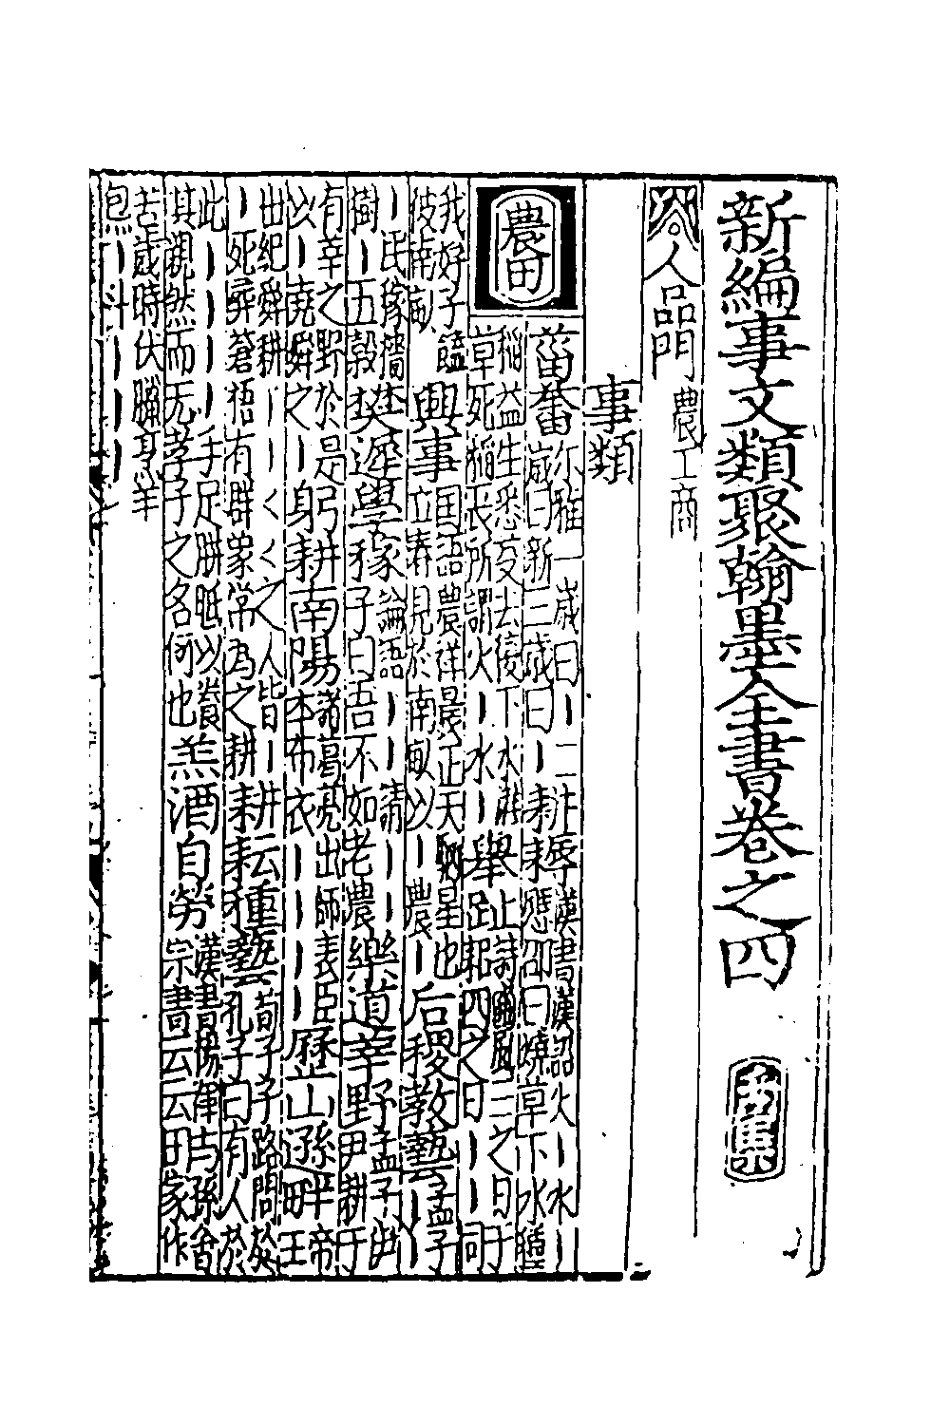 新編事文類聚翰墨全書卷之四
人品門 農工商
事類
農田
葘畬 尔雅一歲曰丨二
歲曰新三歲曰丨
漢書漢詔火丨水丨
應邵曰燒草下水種
稻益生悉芟去復下水灌
草死稻長所謂火丨水丨
舉趾 詩豳風三之日于
耜四之日丨丨同
我好子饁
彼南畝
興事 国語農祥晨正天駟星也
立春見於南畝以丨農丨
后稷教藝 孟子
丨民稼穡
樹丨五穀
樊遲學稼 論語丨丨請丨丨
子曰吾不如老農
樂道莘野 孟子伊
尹耕于
有莘之野於是
以丨堯舜之丨
躬耕南陽 諸葛亮出師表臣
本布衣丨丨丨丨
歷山遜畔 帝
王
出紀舜耕丨丨くく之人皆丨耕
丨死葬蒼梧有群象常為之耕
耕耘種藝 荀子子路問於
孔子曰有人於
此丨丨丨丨手足胼胝以養
其親然而无孝子之名何也
羔酒自勞 漢書楊惲与孫會
宗書云云田家作
苦歲時伏臘亨羊
炰丨斗丨丨丨丨